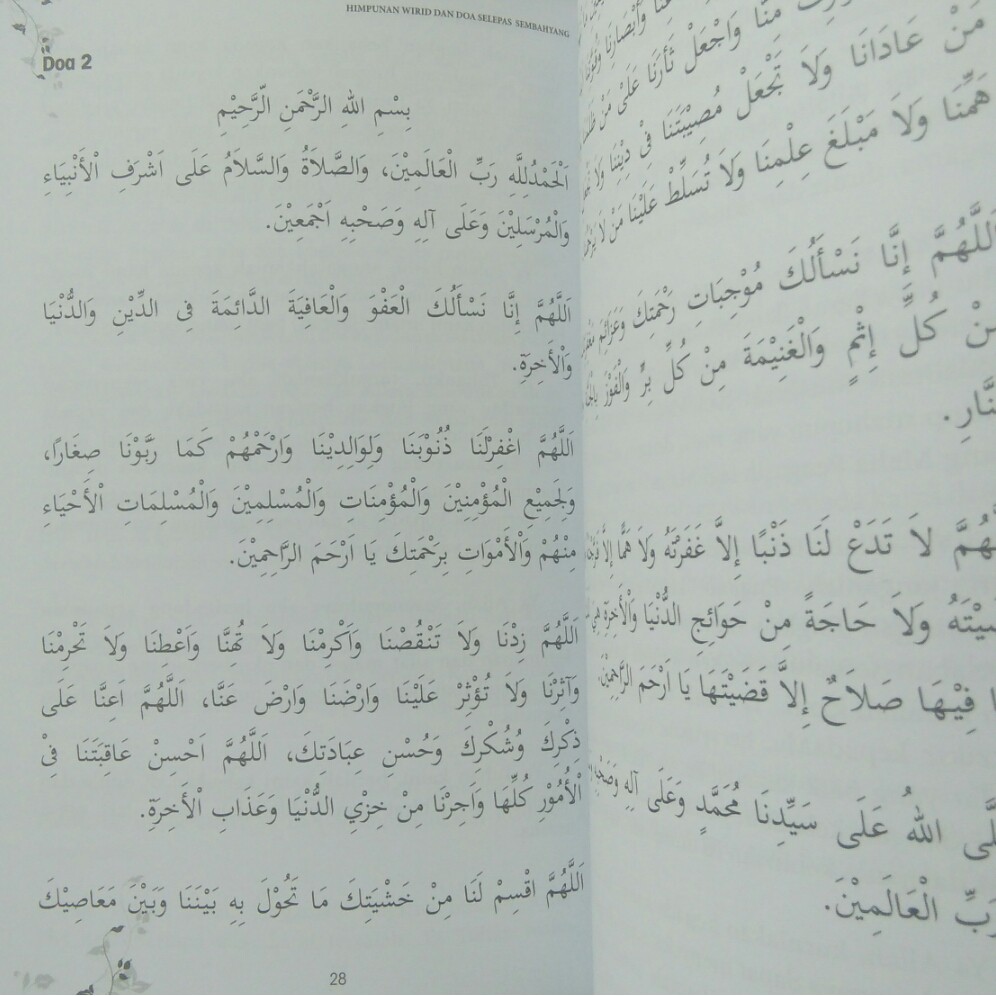 HIMPUNAN WIRID DAN DOA SELEPAS SEMBAHYANG
Doa 2
بِسْمِ اللهِ الرَّحْمَنِ الرَّحِيْمِ
اَلْحَمْدُلِلَّهِ رَبِّ الْعَالَمِيْنَ، وَالصَّلَاةُ وَالسَّلَامُ عَلَى اَشْرَفِ الْأَنْبِيَاءِ
وَالْمُرْسَلِيْنَ وَعَلَى آلِهِ وَصَحْبِهِ اَجْمَعِيْنَ.
اَللَّهُمَّ إِنَّا نَسْأَلُكَ الْعَفْوَ وَالْعَافِيَةَ الدَّائِمَةَ فِى الدِّيْنِ وَالدُّنْيَا
وَالْأَخِرَةِ.
اَللَّهُمَّ اغْفِرْلَنَا ذُنُوْبَنَا وَلِوَالِدِيْنَا وَارْحَمْهُمْ كَمَا رَبَّوْنَا صِغَارًا،
وَلِجَمِيْعِ الْمُؤْمِنِيْنَ وَالْمُؤْمِنَاتِ وَالْمُسْلِمِيْنَ وَالْمُسْلِمَاتِ الْأَحْيَاءِ
مِنْهُمْ وَالْأَمْوَاتِ بِرَحْمَتِكَ يَا اَرْحَمَ الرَّاحِمِيْنَ.
اَللَّهُمَّ زِدْنَا وَلَا تَنْقُصْنَا وَاَكْرِمْنَا وَلَا تُهِنَّا وَاَعْطِنَا وَلَا تَحْرِمْنَا
وَآثِرْنَا وَلَا تُؤْثِرْ عَلَيْنَا وَارْضَنَا وَارْضَ عَنَّا، اَللَّهُمَّ اَعِنَّا عَلَى
ذِكْرِكَ وَشُكْرِكَ وَحُسْنِ عِبَادَتِكَ، اَللَّهُمَّ اَحْسِنْ عَاقِبَتَنَا فِيْ
الْأُمُوْرِ كُلِّهَا وَاَجِرْنَا مِنْ خِزْيِ الدُّنْيَا وَعَذَابِ الْأَخِرَةِ.
اَللَّهُمَّ اقْسِمْ لَنَا مِنْ خَشْيَتِكَ مَا تَحُوْلُ بِهِ بَيْنَنَا وَبَيْنَ مَعَاصِيْكَ
28
وَأَبْصَارِنَا
مِنَّا وَاجْعَلْ ثَأْرَنَا عَلَىْ مَنْ
مَنْ عَادَانَا وَلَا تَجْعَلْ مُصِيْبَتَنَا فِيْ دِيْنِنَا وَلَا
هَمِّنَا وَلَا مَبْلَغَ عِلْمِنَا وَلَا تُسَلِّطْ عَلَيْنَا مَنْ لَا
اَللَّهُمَّ إِنَّا نَسْأَلُكَ مُوْجِبَاتِ رَحْمَتِكَ وَعَزَائِمَ
كُلِّ إِثْمٍ وَالْغَنِيْمَةَ مِنْ كُلِّ بِرٍّ وَالْفَوْزَ
لَا تَدَعْ لَنَا ذَنْبًا إِلَّا غَفَرْتَهُ وَلَا هَمًّا إِلَّا
وَلَا حَاجَةً مِنْ حَوَائِجِ الدُّنْيَا وَالْأَخِرَةِ هِيَ
فِيْهَا صَلَاحٌ إِلَّا قَضَيْتَهَا يَا اَرْحَمَ الرَّاحِمِيْنَ.
اللهُ عَلَى سَيِّدِنَا مُحَمَّدٍ وَعَلَى آلِهِ
الْعَالَمِيْنَ.